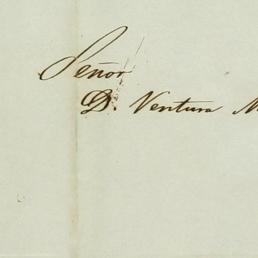 Señor
D. Ventura M